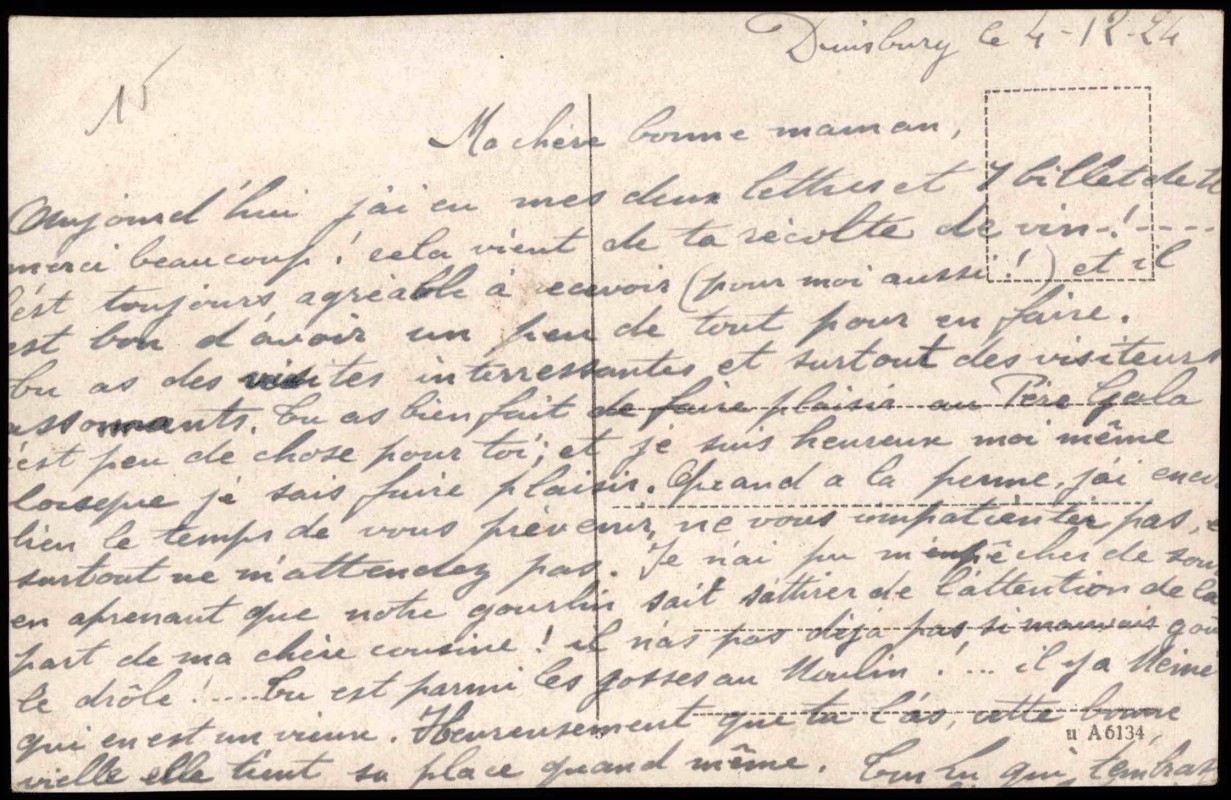 Duisbury le 4-12-24
15
Ma chère bonne maman,
Aujourd'hui j'ai eu mes deux lettres et 7 billet de
merci beaucoup! cela vient de ta récolte de vin-!----
c'est toujours agréable à recevoir (pour moi aussi!) et il
est bon d'avoir un peu de tout pour en faire.
Tu as des visites interressantes et surtout des visiteurs
assomants. Tu as bien fait de faire plaisir au Père Gala
c'est peu de chose pour toi; et je suis heureux moi même
lorsque je sais faire plaisir. Quand a la perme, j'ai enco
bien le temps de vous prévenir, ne vous impatienter pas,
surtout ne m'attendez pas. Je n'ai pu m'empêcher de sou
en aprenant que notre gourlin sait sattirer de l'attention de la
part de ma chère cousine! il n'as pas déja pas si mauvais goû
le drôle!....Tu est parmi les gosses au Moulin!... il y a Meme
qui en est un vieux. Heureusement que ta l'as, cette bonne
vielle elle tient sa place quand même. Ton Lu qui t'embras
u A6134